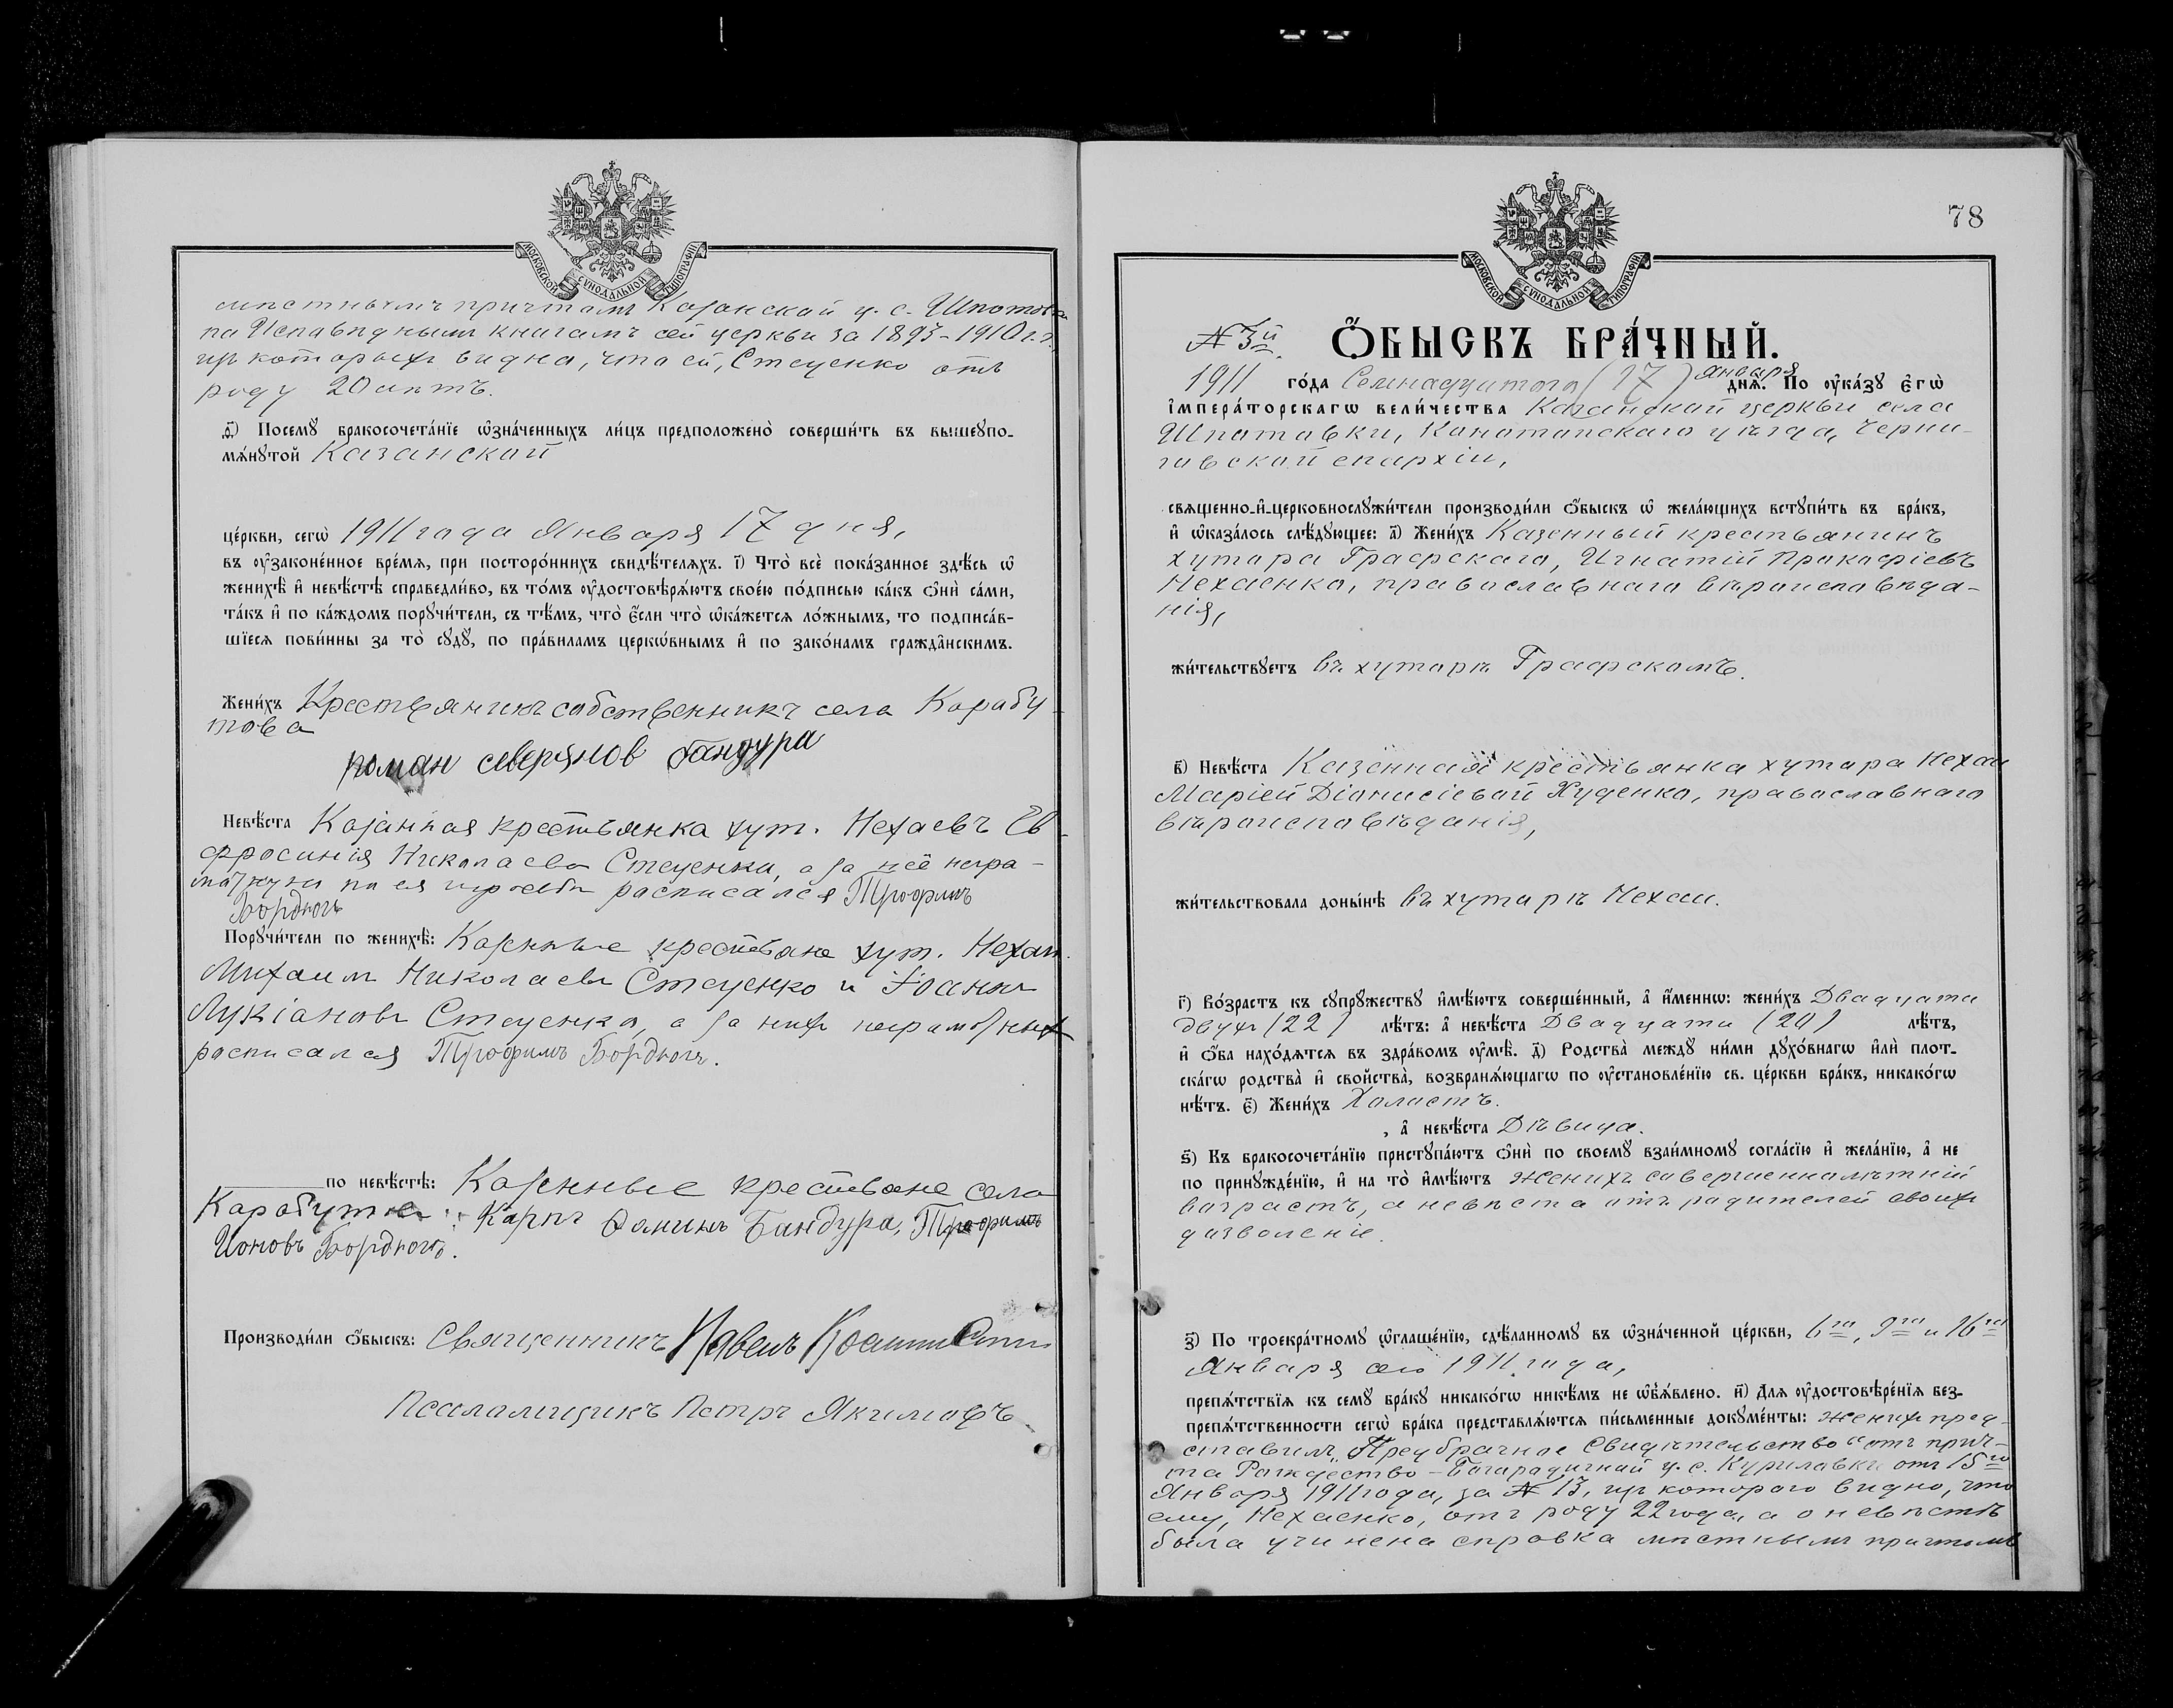 МОСКОВСКОЙ СѴНОДАЛЬНОЙ ТИПОГРАФІИ
мѣстнымъ причтомъ Казанской ц. с. Шпотовки
по Исповѣднымъ книгамъ сей церкви за 1893-1910 г.г.,
изъ которыхъ видно, что ей, Стеценко отъ
роду 20 лѣтъ.
ѳ҃) Посемꙋ бракосочета́нїе ѡ҆зна́ченныхъ ли́цъ предположено̀ соверши́ть въ вышеꙋпо-
мѧ́нꙋтой Казанской
це́ркви, сегѡ̀ 1911 года Января 17 дня,
въ ᲂу҆законе́нное вре́мѧ, при посторо́ннихъ свидѣ́телѧхъ. і҃) Что̀ всѐ пока́занное здѣ́сь ѡ҆
женихѣ̀ и҆ невѣ́стѣ справедли́во, въ то́мъ ᲂу҆достовѣрѧ́ютъ свое́ю по́дписью ка́къ ѻ҆нѝ са́ми,
та́къ и҆ по ка́ждомъ порꙋчи́тели, съ тѣ́мъ, что̀ є҆́сли что̀ ѡ҆ка́жетсѧ ло́жнымъ, то подписа́в-
шїесѧ пови́нны за то̀ сꙋдꙋ̀, по пра́виламъ церкѡ́внымъ и҆ по зако́намъ гражда̑нскимъ.
Жени́хъ Крестьянинъ собственникъ села Карабу-
това
роман северянов бандура
Невѣ́ста Казенная крестьянка хут. Нехаевъ Ев-
фросинія Николаева Стеценко, а за неё негра-
мотную по ея просьбѣ расписался Трофимъ
Бордюгъ
Порꙋчи́тели по женихѣ̀: Казенные крестьяне хут. Нехаи
Михаилъ Николаевъ Стеценко и Іоаннъ
Лукіановъ Стеценко, а за нихъ неграмотныхъ
расписался Трофимъ Бордюгъ.
по невѣ́стѣ: Казенные крестьяне села
Карабутова: Карпъ Фоминъ Бандура, Трофимъ
Іоновъ Бордюгъ.
Производи́ли ѻ҆́быскъ: Священникъ Павелъ
Псаломщикъ Петръ Якимовъ
78
МОСКОВСКОЙ СѴНОДАЛЬНОЙ ТИПОГРАФІИ
№ 3й. Ѻ҆́БЫСКЪ БРА́ЧНЫЙ.
1911 го́да Семнадцатого (17) Января днѧ̀. По ᲂу҆ка́зꙋ є҆гѡ̀
и҆мпера́торскагѡ вели́чества Казанской церкви села
Шпотовки, Конотопскаго уѣзда, Черни-
говской епархіи,
свѧщенно-и҆-церковнослꙋжи́тели производи́ли ѻ҆́быскъ ѡ҆ жела́ющихъ встꙋпи́ть въ бра́къ,
и҆ ѡ҆каза́лось слѣ́дꙋющее: а҃) Жени́хъ Казенный крестьянинъ
хутора Графскаго, Игнатій Прокофіевъ
Нехаенко, православнаго вѣроисповѣда-
нія,
жи́тельствꙋетъ въ хуторѣ Графскомъ.
в҃) Невѣ́ста Казенная крестьянка хутора Нехаи
Маріей Діонисіевой Худенко, православнаго
вѣроисповѣданія,
жи́тельствовала доны́нѣ въ хуторѣ Нехаи.
г҃) Во́зрастъ къ сꙋпрꙋ́жествꙋ и҆мѣ́ютъ соверше́нный, а҆ и҆́меннѡ: жени́хъ Двадцати
двухъ (22) лѣ́тъ: а҆ невѣ́ста Двадцати (20) лѣ́тъ,
и҆ ѻ҆́ба нахо́дѧтсѧ въ здра́вомъ ᲂу҆мѣ̀. д҃) Родства̀ междꙋ ни́ми дꙋхо́внагѡ и҆лѝ плот-
ска́гѡ родства̀ и҆ свойства̀, возбранѧ́ющагѡ по ᲂу҆становле́нїю св. це́ркви бра́къ, никако́гѡ
нѣ́тъ. є҃) Жени́хъ Холостъ.
, а҆ невѣ́ста Дѣвица.
ѕ҃) Къ бракосочета́нїю пристꙋпа́ютъ ѻ҆нѝ по своемꙋ̀ взаи́мномꙋ согла́сїю и҆ жела́нїю, а҆ не
по принꙋжде́нїю, и҆ на то̀ и҆мѣ́ютъ женихъ совершеннолѣтній
возрастъ, а невѣста отъ родителей своихъ
дозволеніе.
з҃) По троекра́тномꙋ ѡ҆глаше́нїю, сдѣ́ланномꙋ въ ѡ҆зна́ченной це́ркви, 6го, 9го и 16го
Января сего 1911 года,
препѧ́тствїѧ къ семꙋ̀ бра́кꙋ никако́гѡ никѣ́мъ не ѡ҆б̾ѧ́влено. и҃) Длѧ ᲂу҆достовѣре́нїѧ без-
препѧ́тственности сегѡ̀ бра́ка представлѧ́ютсѧ пи́сьменные докꙋме́нты: женихъ пред-
ставилъ „Предбрачное Свидѣтельство“ отъ прич-
та Рождество-Богородичной ц. с. Куриловки отъ 15го
Января 1911 года, за № 13, изъ которого видно, что
ему, Нехаенко, отъ роду 22 года, а о невѣстѣ
была учинена справка мѣстнымъ причтомъ